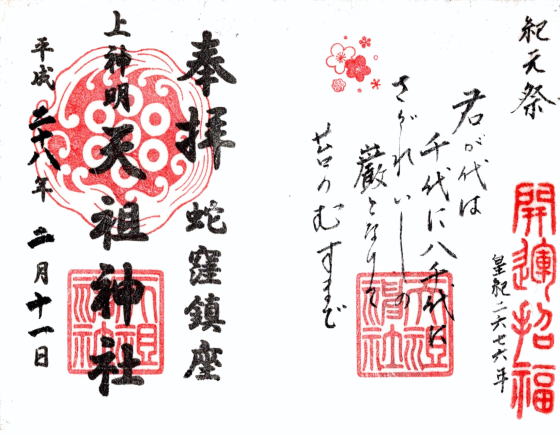 紀元祭
開運招福
皇紀二六七六年
君が代は
千代に八千代に
さゞれいしの
巌となりて
苔のむすまで
天祖神社
奉拝
蛇窪鎮座
上神明
天祖神社
天祖神社
平成二十八年二月十一日